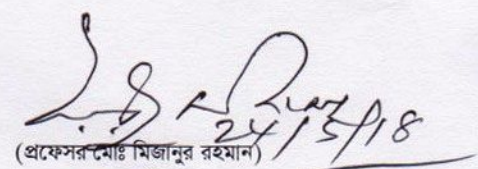 24/5/18
(প্রফেসর মোঃ মিজানুর রহমান)